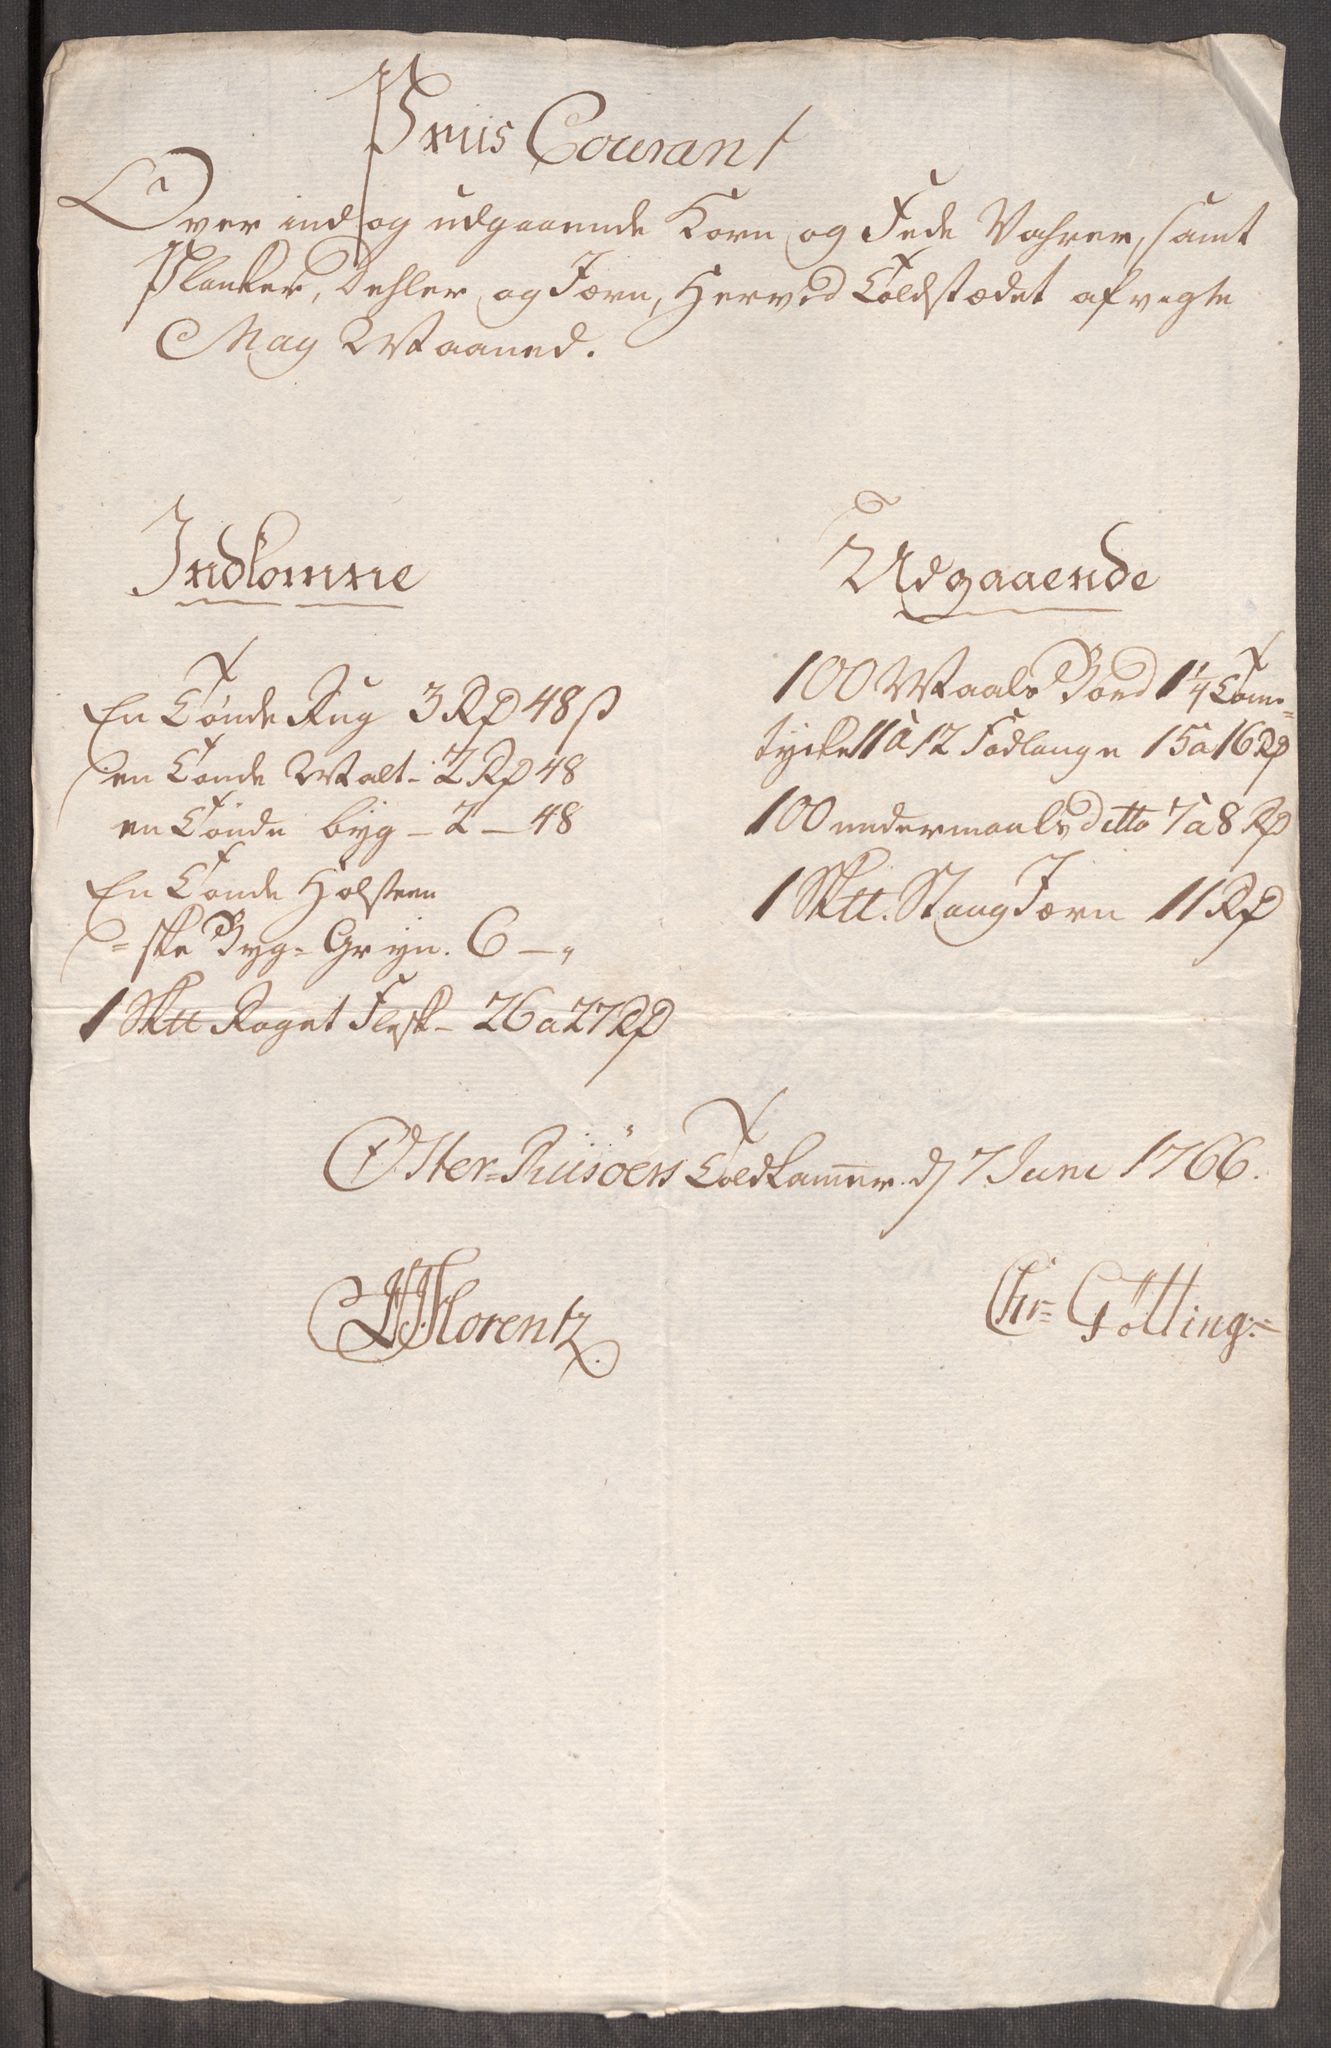 Priis Courant
Over ind og udgaaende Korn og Fede Vahrer, samt
Planker, Dehler og Jærn, Herved Toldstædet afvigte
May Maaned.
Indkomne
En Tønde Rug 3 Rd 48 s
en Tønde Malt - 2 Rd 48
en Tønde byg - 2 - 48
En Tønde Holsteen
= ske Byg = Gryn. 6 - "
1 Sktt Røget Flesk - 26 a 27 Rd
Udgaaende
100 Maals Bord 1 1/4 Tom=
tycke 11 à 12 Fod lange 15 a 16 Rd
100 undermaals ditto 7 à 8 Rd
1 Sktt. Stang Jærn 11 Rd
Øster-Riisöers Toldkammer d 7 Juni 1766.
Florentz
Chr= Götting=